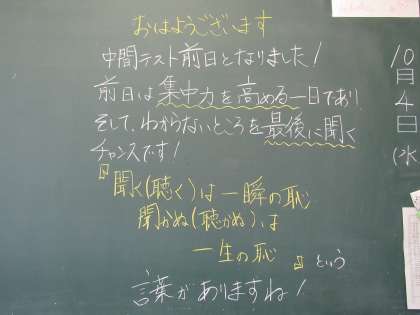 おはようございます
中間テスト前日となりました！
前日は集中力を高める一日であり
そして、わからないところを最後に聞く
チャンスです！
『聞く(聴く)は一瞬の恥
聞かぬ(聴かぬ)は
一生の恥』という
言葉がありますね！
10月4日(水